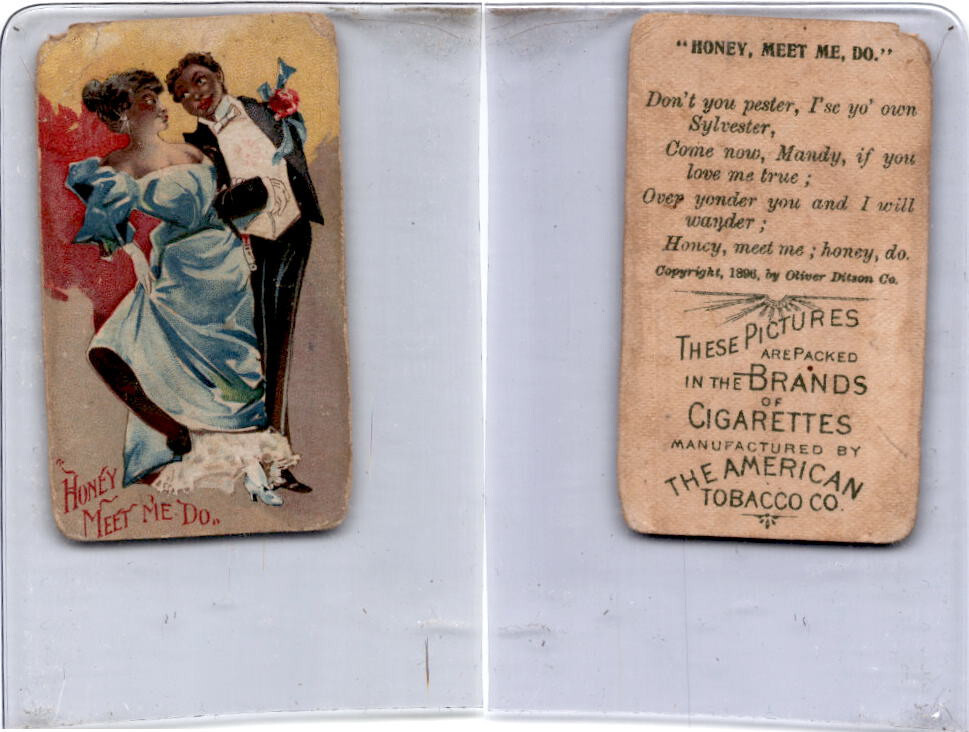 "HONEY
MEET ME DO"
"HONEY, MEET ME, DO."
Don't you pester, I'se yo' own
Sylvester,
Come now, Mandy, if you
love me true;
Over yonder you and I will
wander;
Honey, meet me; honey, do.
Copyright, 1896, by Oliver Ditson Co.
THESE PICTURES
ARE PACKED
IN THE BRANDS
OF
CIGARETTES
MANUFACTURED BY
THE AMERICAN
TOBACCO CO.